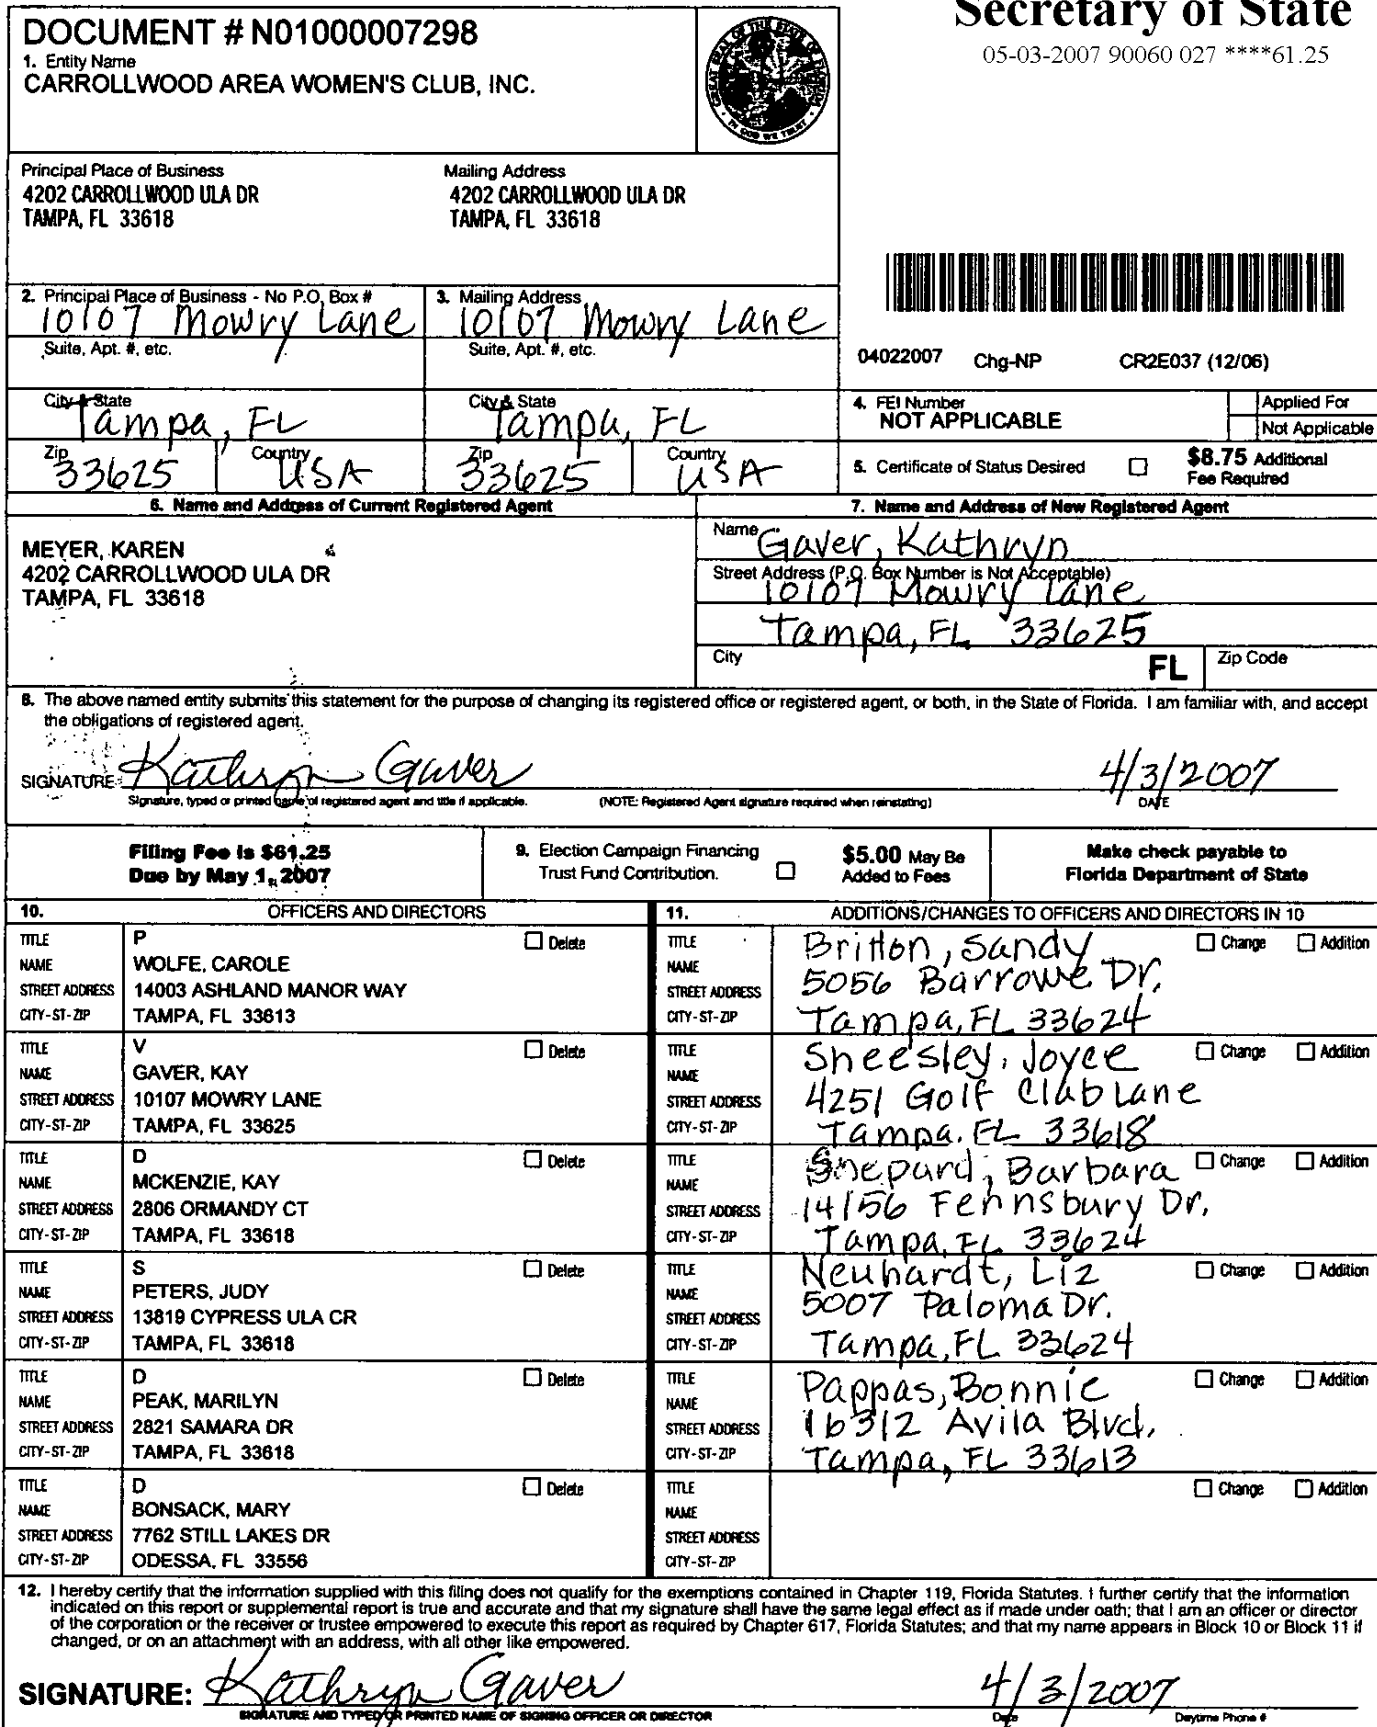 Secretary of State
05-03-2007 90060 027 ****61.25
DOCUMENT # N01000007298
1. Entity Name
CARROLLWOOD AREA WOMEN'S CLUB, INC.
GREAT SEAL OF THE STATE OF FLORIDA
IN GOD WE TRUST
Principal Place of Business
4202 CARROLLWOOD ULA DR
TAMPA, FL 33618
Mailing Address
4202 CARROLLWOOD ULA DR
TAMPA, FL 33618
2. Principal Place of Business - No P.O. Box #
10107 Mowry Lane
Suite, Apt. #, etc.
3. Mailing Address
10107 Mowry Lane
Suite, Apt. #, etc.
04022007 Chg-NP CR2E037 (12/06)
City & State
Tampa, FL
City & State
Tampa, FL
Zip
33625
Country
USA
Zip
33625
Country
USA
4. FEI Number
NOT APPLICABLE
Applied For
Not Applicable
5. Certificate of Status Desired
$8.75 Additional
Fee Required
6. Name and Address of Current Registered Agent
MEYER, KAREN
4202 CARROLLWOOD ULA DR
TAMPA, FL 33618
7. Name and Address of New Registered Agent
Name Gaver, Kathryn
Street Address (P.O. Box Number is Not Acceptable)
10107 Mowry Lane
Tampa, FL 33625
City FL Zip Code
8. The above named entity submits this statement for the purpose of changing its registered office or registered agent, or both, in the State of Florida. I am familiar with, and accept
the obligations of registered agent.
SIGNATURE Kathryn Gaver 4/3/2007
Signature, typed or printed name of registered agent and title if applicable. (NOTE: Registered Agent signature required when reinstating) DATE
Filing Fee is $61.25
Due by May 1, 2007
9. Election Campaign Financing
Trust Fund Contribution.
$5.00 May Be
Added to Fees
Make check payable to
Florida Department of State
10. OFFICERS AND DIRECTORS
TITLE P Delete
NAME WOLFE, CAROLE
STREET ADDRESS 14003 ASHLAND MANOR WAY
CITY-ST-ZIP TAMPA, FL 33613
TITLE V Delete
NAME GAVER, KAY
STREET ADDRESS 10107 MOWRY LANE
CITY-ST-ZIP TAMPA, FL 33625
TITLE D Delete
NAME MCKENZIE, KAY
STREET ADDRESS 2806 ORMANDY CT
CITY-ST-ZIP TAMPA, FL 33618
TITLE S Delete
NAME PETERS, JUDY
STREET ADDRESS 13819 CYPRESS ULA CR
CITY-ST-ZIP TAMPA, FL 33618
TITLE D Delete
NAME PEAK, MARILYN
STREET ADDRESS 2821 SAMARA DR
CITY-ST-ZIP TAMPA, FL 33618
TITLE D Delete
NAME BONSACK, MARY
STREET ADDRESS 7762 STILL LAKES DR
CITY-ST-ZIP ODESSA, FL 33556
11. ADDITIONS/CHANGES TO OFFICERS AND DIRECTORS IN 10
TITLE Britton, Sandy Change Addition
NAME
STREET ADDRESS 5056 Barrowe Dr.
CITY-ST-ZIP Tampa, FL 33624
TITLE Sheesley, Joyce Change Addition
NAME
STREET ADDRESS 4251 Golf Club Lane
CITY-ST-ZIP Tampa, FL 33618
TITLE Shepard, Barbara Change Addition
NAME
STREET ADDRESS 14156 Fennsbury Dr.
CITY-ST-ZIP Tampa, FL 33624
TITLE Neuhardt, Liz Change Addition
NAME
STREET ADDRESS 5007 Paloma Dr.
CITY-ST-ZIP Tampa, FL 33624
TITLE Pappas, Bonnie Change Addition
NAME
STREET ADDRESS 16312 Avila Blvd.
CITY-ST-ZIP Tampa, FL 33613
TITLE Change Addition
NAME
STREET ADDRESS
CITY-ST-ZIP
12. I hereby certify that the information supplied with this filing does not qualify for the exemptions contained in Chapter 119, Florida Statutes. I further certify that the information
indicated on this report or supplemental report is true and accurate and that my signature shall have the same legal effect as if made under oath; that I am an officer or director
of the corporation or the receiver or trustee empowered to execute this report as required by Chapter 617, Florida Statutes; and that my name appears in Block 10 or Block 11 if
changed, or on an attachment with an address, with all other like empowered.
SIGNATURE: Kathryn Gaver 4/3/2007
SIGNATURE AND TYPED OR PRINTED NAME OF SIGNING OFFICER OR DIRECTOR Date Daytime Phone #